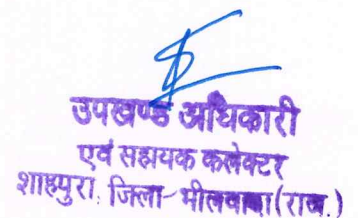 उपखण्ड अधिकारी
एवं सहायक कलेक्टर
शाहपुरा, जिला-भीलवाड़ा(राज.)